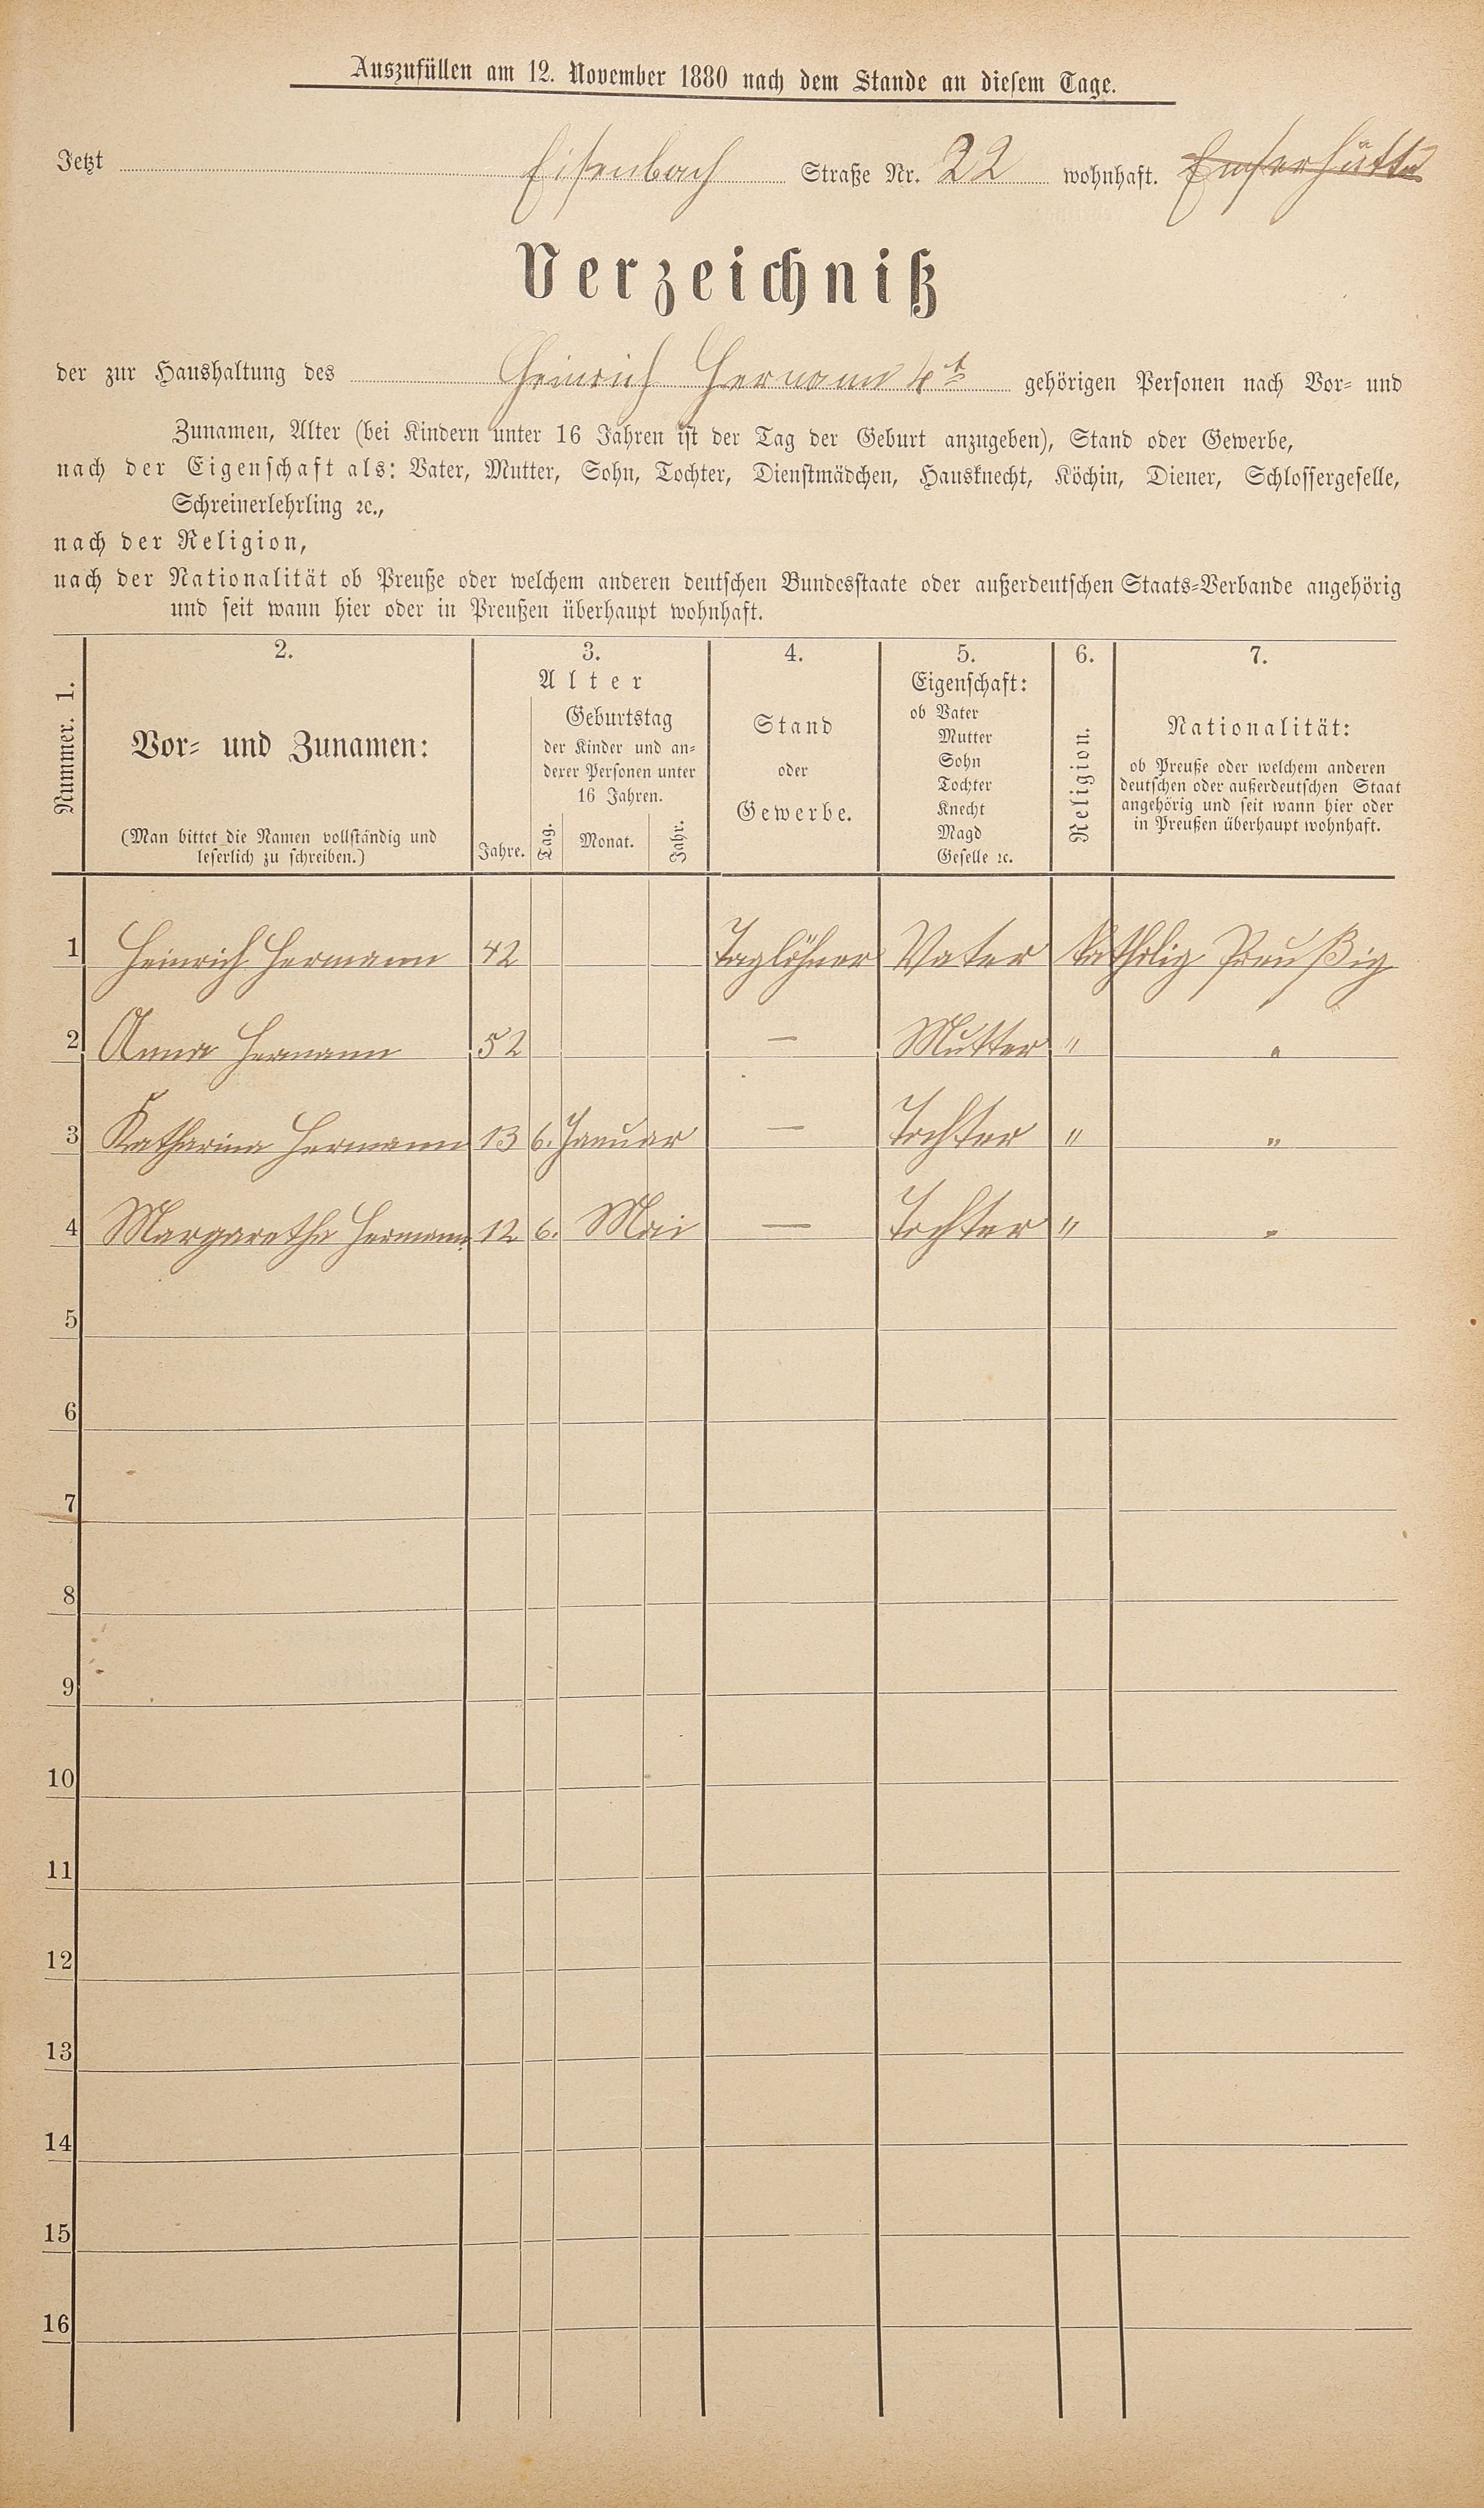 Auszufüllen am 12. November 1880 nach dem Stande an diesem Tage.
Jetzt Eisenbach Straße Nr. 22 wohnhaft. Emserhütte
Verzeichniß
der zur Haushaltung des Heinrich Hermann 4t gehörigen Personen nach Vor- und
Zunamen, Alter (bei Kindern unter 16 Jahren ist der Tag der Geburt anzugeben), Stand oder Gewerbe,
nach der Eigenschaft als: Vater, Mutter, Sohn, Tochter, Dienstmädchen, Hausknecht, Köchin, Diener, Schlossergeselle,
Schreinerlehrling ꝛc.,
nach der Religion,
nach der Nationalität ob Preuße oder welchem anderen deutschen Bundesstaate oder außerdeutschen Staats-Verbande angehörig
und seit wann hier oder in Preußen überhaupt wohnhaft.
Nummer. 1.
2.
Vor- und Zunamen:
(Man bittet die Namen vollständig und
leserlich zu schreiben.)
3.
Alter
Jahre.
Geburtstag
der Kinder und an-
derer Personen unter
16 Jahren.
Tag.
Monat.
Jahr.
4.
Stand
oder
Gewerbe.
5.
Eigenschaft:
ob Vater
Mutter
Sohn
Tochter
Knecht
Magd
Geselle ꝛc.
6.
Religion.
7.
Nationalität:
ob Preuße oder welchem anderen
deutschen oder außerdeutschen Staat
angehörig und seit wann hier oder
in Preußen überhaupt wohnhaft.
1 Heinrich Hermann 42 Taglöhner Vater Katholig Preußig
2 Anna Hermann 52 — Mutter " "
3 Katharina Hermann 13 6. Januar — Tochter " "
4 Margaretha Hermann 12 6. Mai — Tochter " "
5
6
7
8
9
10
11
12
13
14
15
16